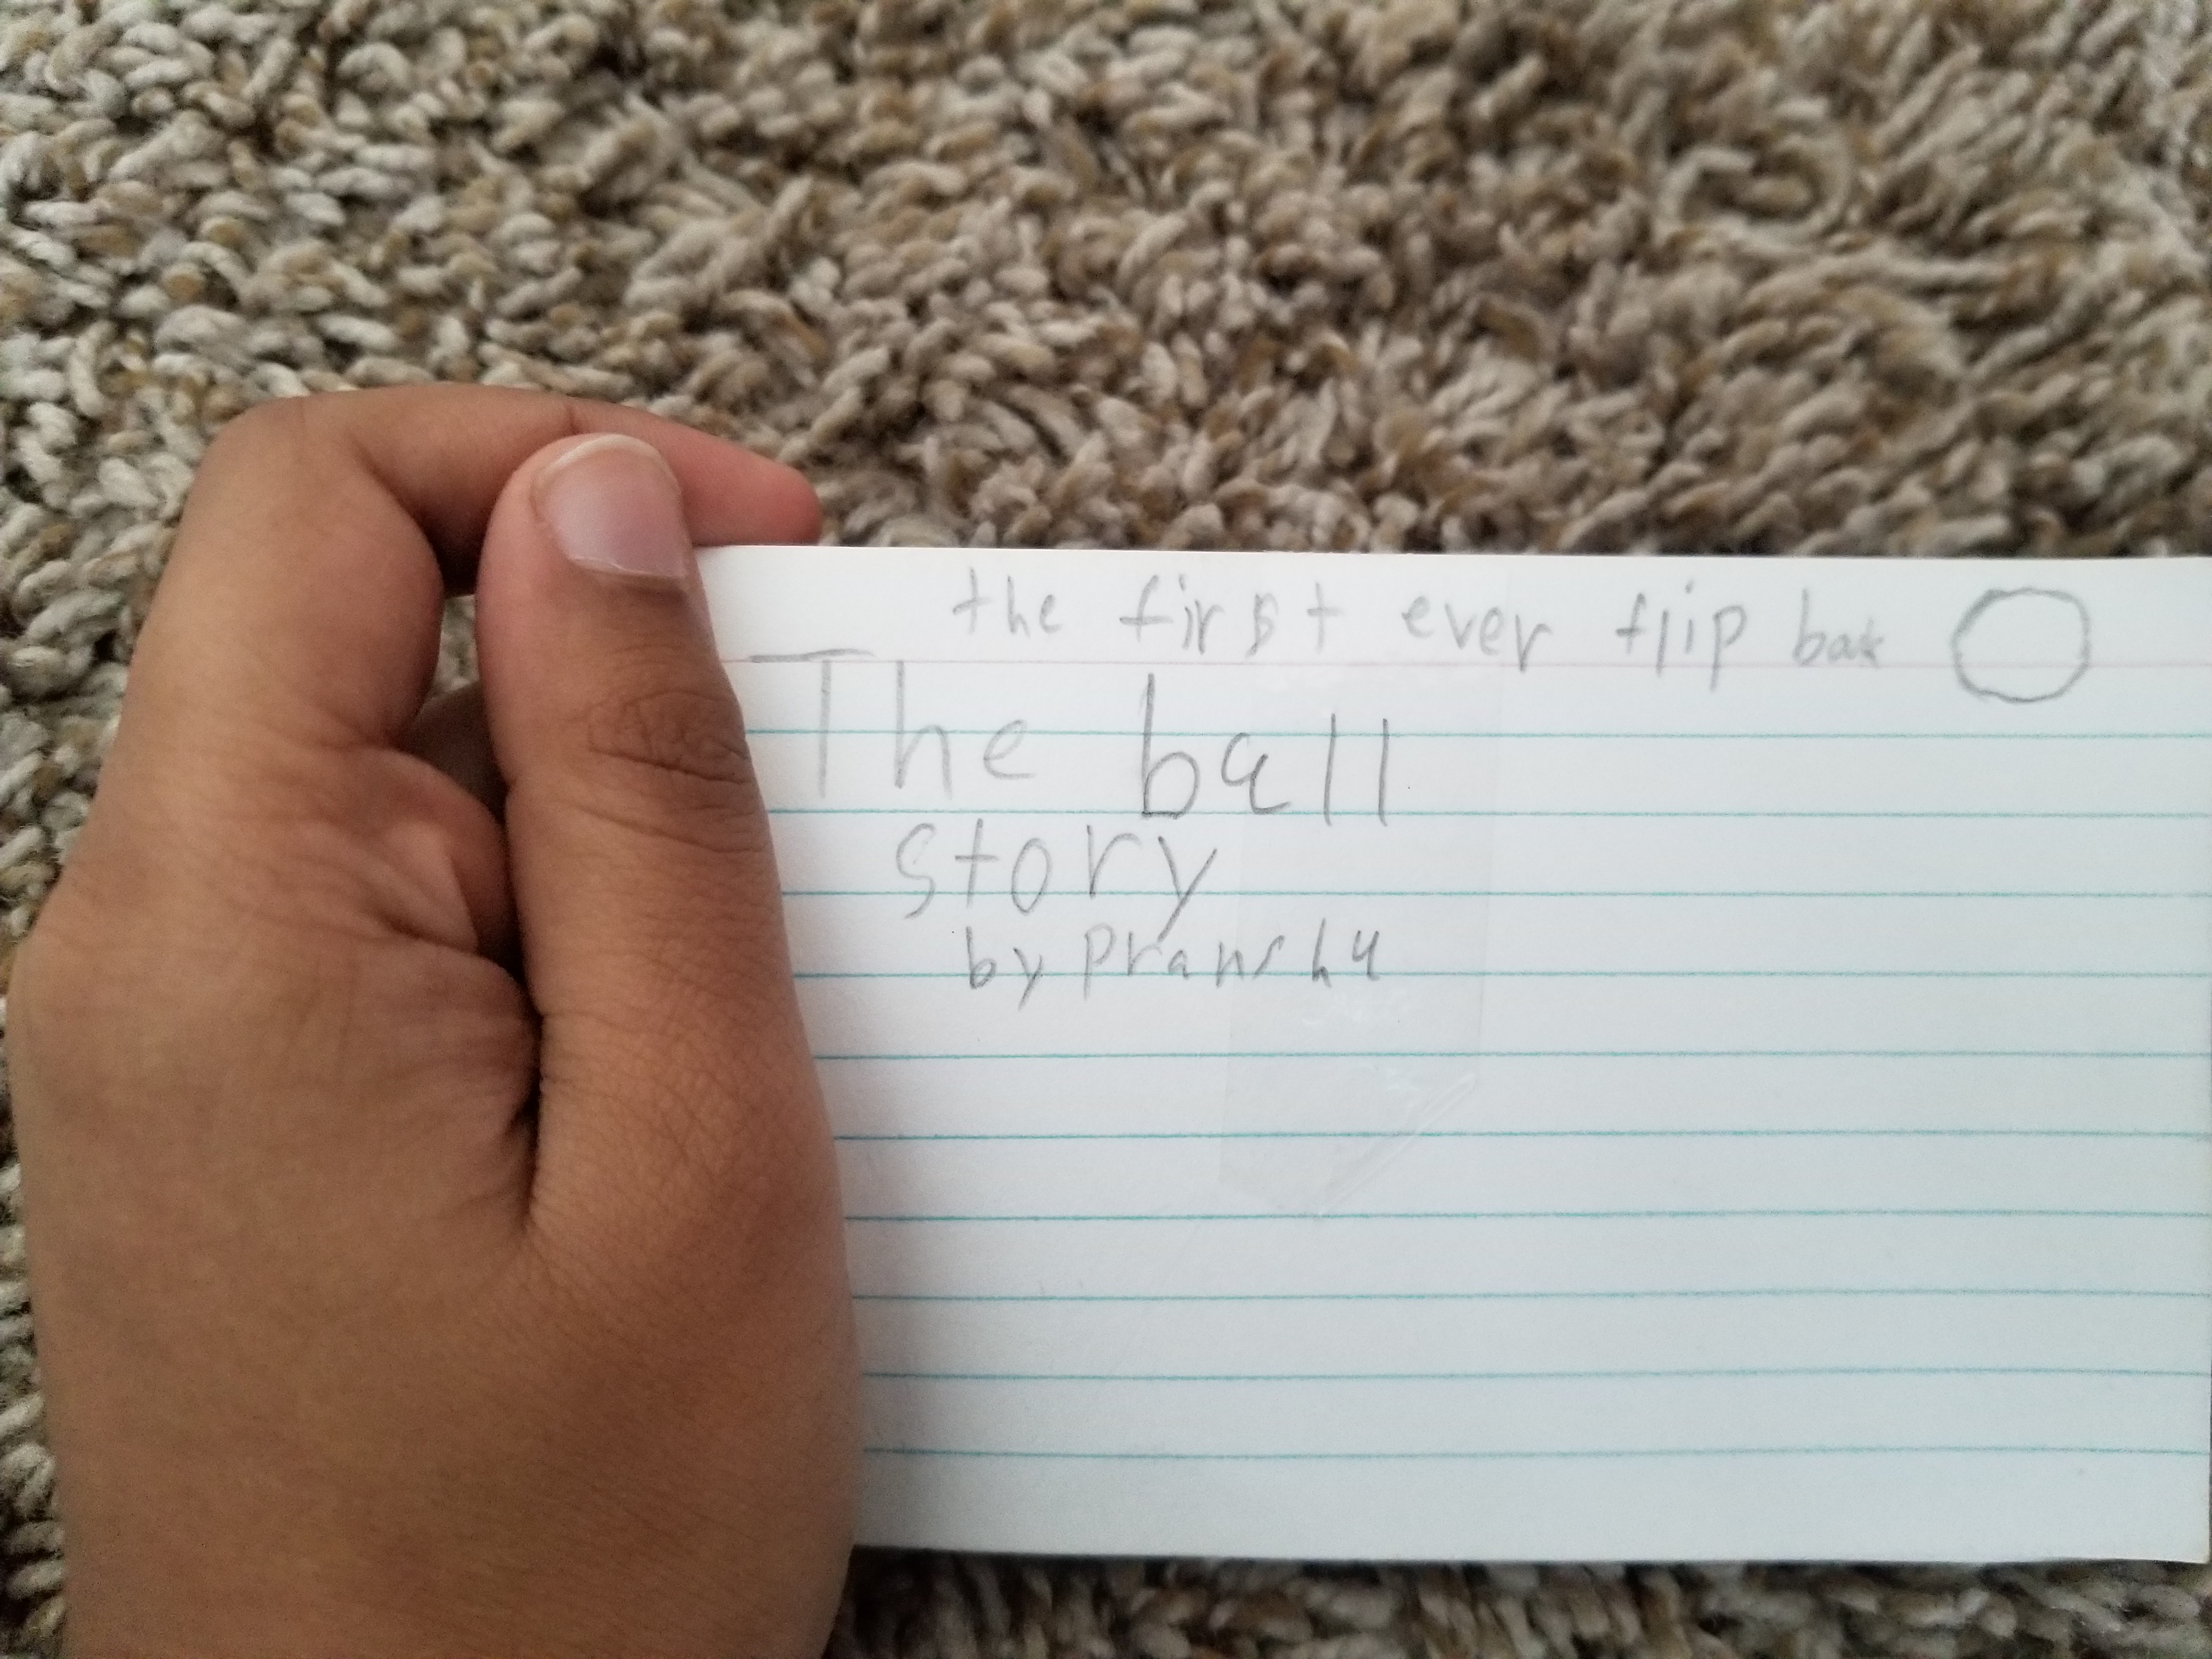 the first ever flip book
The ball
story
by Pranshu